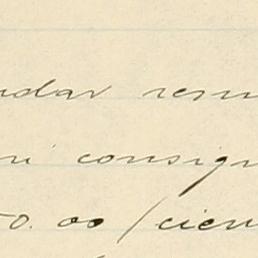 ndar rem
ni consign
50.00 / cien